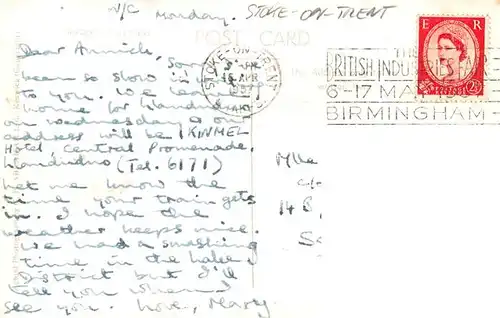 V/C Monday. STOKE-ON-TRENT
POST CARD
Dear Annick, Sorry
been so slow in
to you. We leave
home for Llandudno
on Wednesday & our
address will be KINMEL
Hotel, Central Promenade,
Llandudno (Tel. 6171)
Let me know the
time your train gets
in. I hope the
weather keeps nice.
We had a smashing
time in the Lake
District but I'll
tell you when I
see you. Love, Mary.
STOKE-ON-TRENT
15 APR
1957
STAFFS
THE
BRITISH INDUSTRIES
6-17 MAY
BIRMINGHAM
E R
2½
Mlle
14 B